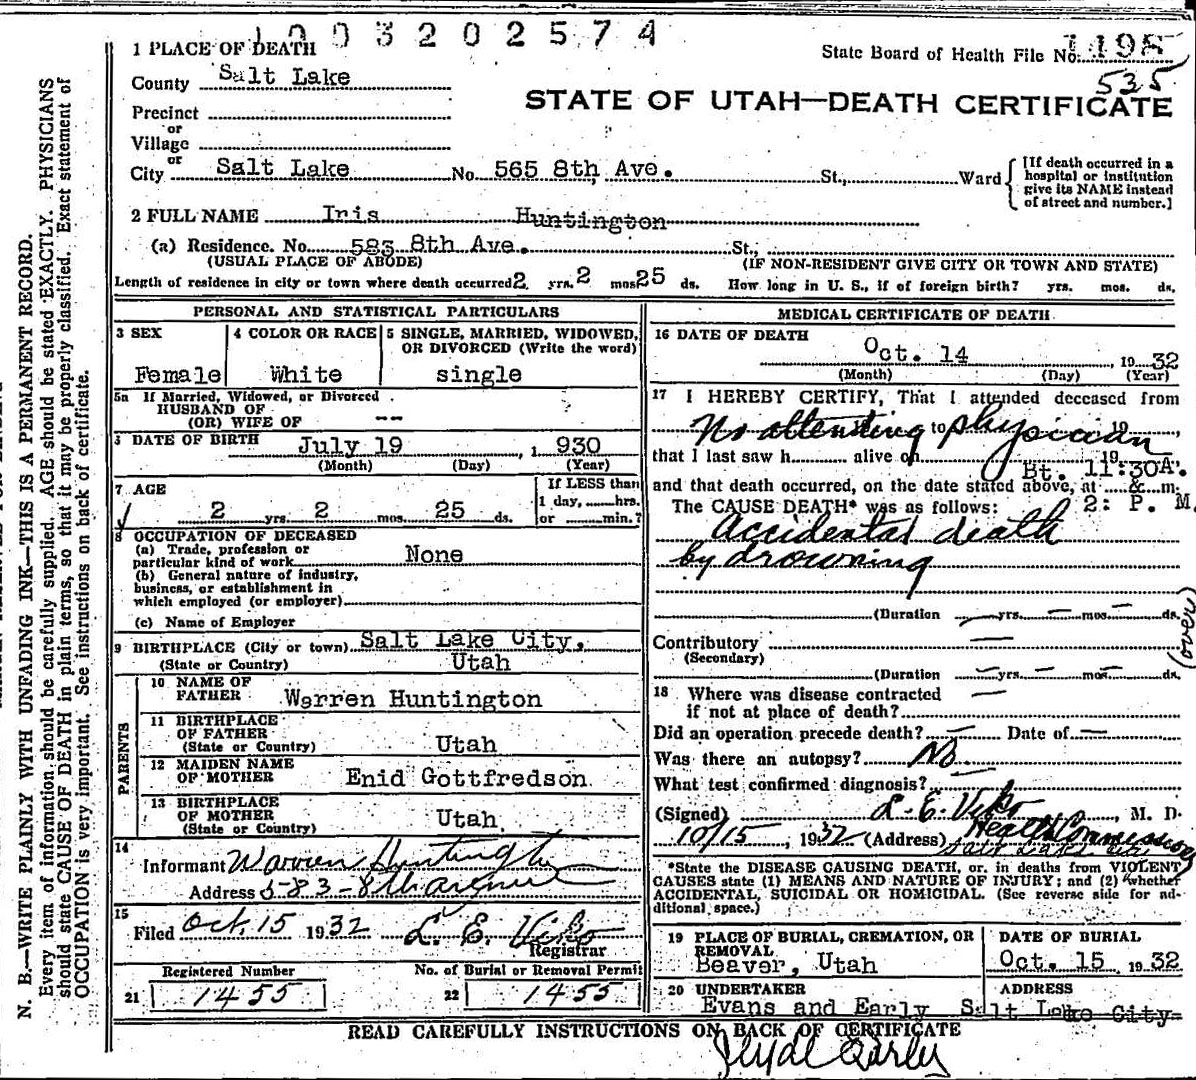 1003202574
1 PLACE OF DEATH
State Board of Health File No. 1198
535
County Salt Lake
STATE OF UTAH—DEATH CERTIFICATE
Precinct
or
Village
or
City Salt Lake No. 565 8th Ave. St., Ward
[If death occurred in a
hospital or institution
give its NAME instead
of street and number.]
2 FULL NAME Iris Huntington
(a) Residence. No. 583 8th Ave. St.,
(USUAL PLACE OF ABODE) (IF NON-RESIDENT GIVE CITY OR TOWN AND STATE)
Length of residence in city or town where death occurred 2 yrs. 2 mos. 25 ds. How long in U. S., if of foreign birth? yrs. mos. ds.
PERSONAL AND STATISTICAL PARTICULARS
3 SEX
Female
4 COLOR OR RACE
White
5 SINGLE, MARRIED, WIDOWED,
OR DIVORCED (Write the word)
single
5a If Married, Widowed, or Divorced
HUSBAND OF
(OR) WIFE OF --
DATE OF BIRTH July 19, 1930
(Month) (Day) (Year)
7 AGE
2 yrs. 2 mos. 25 ds.
If LESS than
1 day, hrs.
or min.?
8 OCCUPATION OF DECEASED
(a) Trade, profession or
particular kind of work None
(b) General nature of industry,
business, or establishment in
which employed (or employer)
(c) Name of Employer
9 BIRTHPLACE (City or town) Salt Lake City,
(State or Country) Utah
PARENTS
10 NAME OF
FATHER Warren Huntington
11 BIRTHPLACE
OF FATHER
(State or Country) Utah
12 MAIDEN NAME
OF MOTHER Enid Gottfredson
13 BIRTHPLACE
OF MOTHER
(State or Country) Utah
14
Informant Warren Huntington
Address 583-8th Avenue
15
Filed Oct. 15 1932 L. E. Viko
Registrar
Registered Number
21 1455
No. of Burial or Removal Permit
22 1455
MEDICAL CERTIFICATE OF DEATH
16 DATE OF DEATH
Oct. 14 1932
(Month) (Day) (Year)
17 I HEREBY CERTIFY, That I attended deceased from
No attending to physician 19
that I last saw h alive on 19
Bt. 11:30A.
and that death occurred, on the date stated above, at & m.
The CAUSE DEATH* was as follows: 2: P. M.
Accidental death
by drowning
(Duration yrs. mos. ds.
(over)
Contributory
(Secondary)
(Duration yrs. mos. ds.
18 Where was disease contracted
if not at place of death?
Did an operation precede death? Date of
Was there an autopsy? No
What test confirmed diagnosis?
(Signed) L. E. Viko, M. D.
10/15, 1932 (Address) Health Commissioner
Salt Lake City
*State the DISEASE CAUSING DEATH, or, in deaths from VIOLENT
CAUSES state (1) MEANS AND NATURE OF INJURY; and (2) whether
ACCIDENTAL, SUICIDAL OR HOMICIDAL. (See reverse side for ad-
ditional space.)
19 PLACE OF BURIAL, CREMATION, OR
REMOVAL
Beaver, Utah
DATE OF BURIAL
Oct. 15 1932
20 UNDERTAKER
Evans and Early
ADDRESS
Salt Lake City
READ CAREFULLY INSTRUCTIONS ON BACK OF CERTIFICATE
N. B.—WRITE PLAINLY WITH UNFADING INK—THIS IS A PERMANENT RECORD.
Every item of information should be carefully supplied. AGE should be stated EXACTLY. PHYSICIANS
should state CAUSE OF DEATH in plain terms, so that it may be properly classified. Exact statement of
OCCUPATION is very important. See instructions on back of certificate.